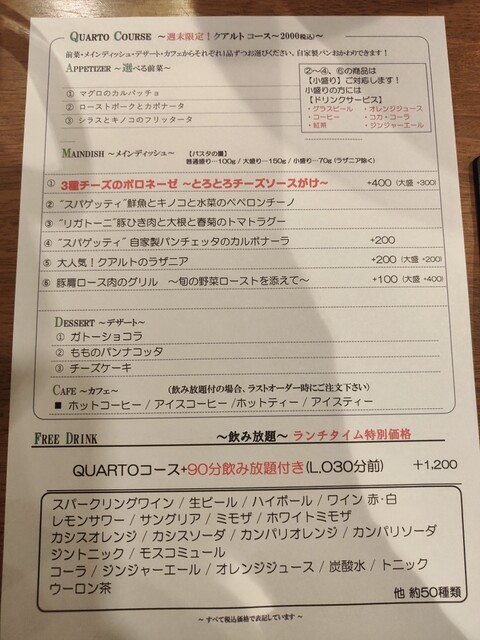 QUARTO COURSE ～週末限定！クアルトコース～2000(税込)～
前菜・メインディッシュ・デザート・カフェからそれぞれ1品ずつお選びください。自家製パンおかわりできます！
APPETIZER ～選べる前菜～
① マグロのカルパッチョ
② ローストポークとカポナータ
③ シラスとキノコのフリッタータ
②～④、⑥の商品は
【小盛り】ご対応します！
小盛りの方には
【ドリンクサービス】
・グラスビール ・オレンジジュース
・コーヒー ・コカ・コーラ
・紅茶 ・ジンジャーエール
MAINDISH ～メインディッシュ～ 【パスタの量】
普通盛り…100g / 大盛り…150g / 小盛り…70g (ラザニア除く)
① 3種チーズのボロネーゼ ～とろとろチーズソースがけ～ +400 (大盛 +300)
② “スパゲッティ”鮮魚とキノコと水菜のペペロンチーノ
③ “リガトーニ”豚ひき肉と大根と春菊のトマトラグー
④ “スパゲッティ” 自家製パンチェッタのカルボナーラ +200
⑤ 大人気！クアルトのラザニア +200 (大盛 +200)
⑥ 豚肩ロース肉のグリル ～旬の野菜ローストを添えて～ +100 (大盛 +400)
DESSERT ～デザート～
① ガトーショコラ
② もものパンナコッタ
③ チーズケーキ
CAFE ～カフェ～ (飲み放題付の場合、ラストオーダー時にご注文下さい)
■ ホットコーヒー / アイスコーヒー /ホットティー / アイスティー
FREE DRINK ～飲み放題～ ランチタイム特別価格
QUARTOコース+90分飲み放題付き(L,O30分前) +1,200
スパークリングワイン / 生ビール / ハイボール / ワイン 赤・白
レモンサワー / サングリア / ミモザ / ホワイトミモザ
カシスオレンジ / カシスソーダ / カンパリオレンジ / カンパリソーダ
ジントニック / モスコミュール
コーラ / ジンジャーエール / オレンジジュース / 炭酸水 / トニック
ウーロン茶 他 約50種類
～ すべて税込価格で表記しています ～